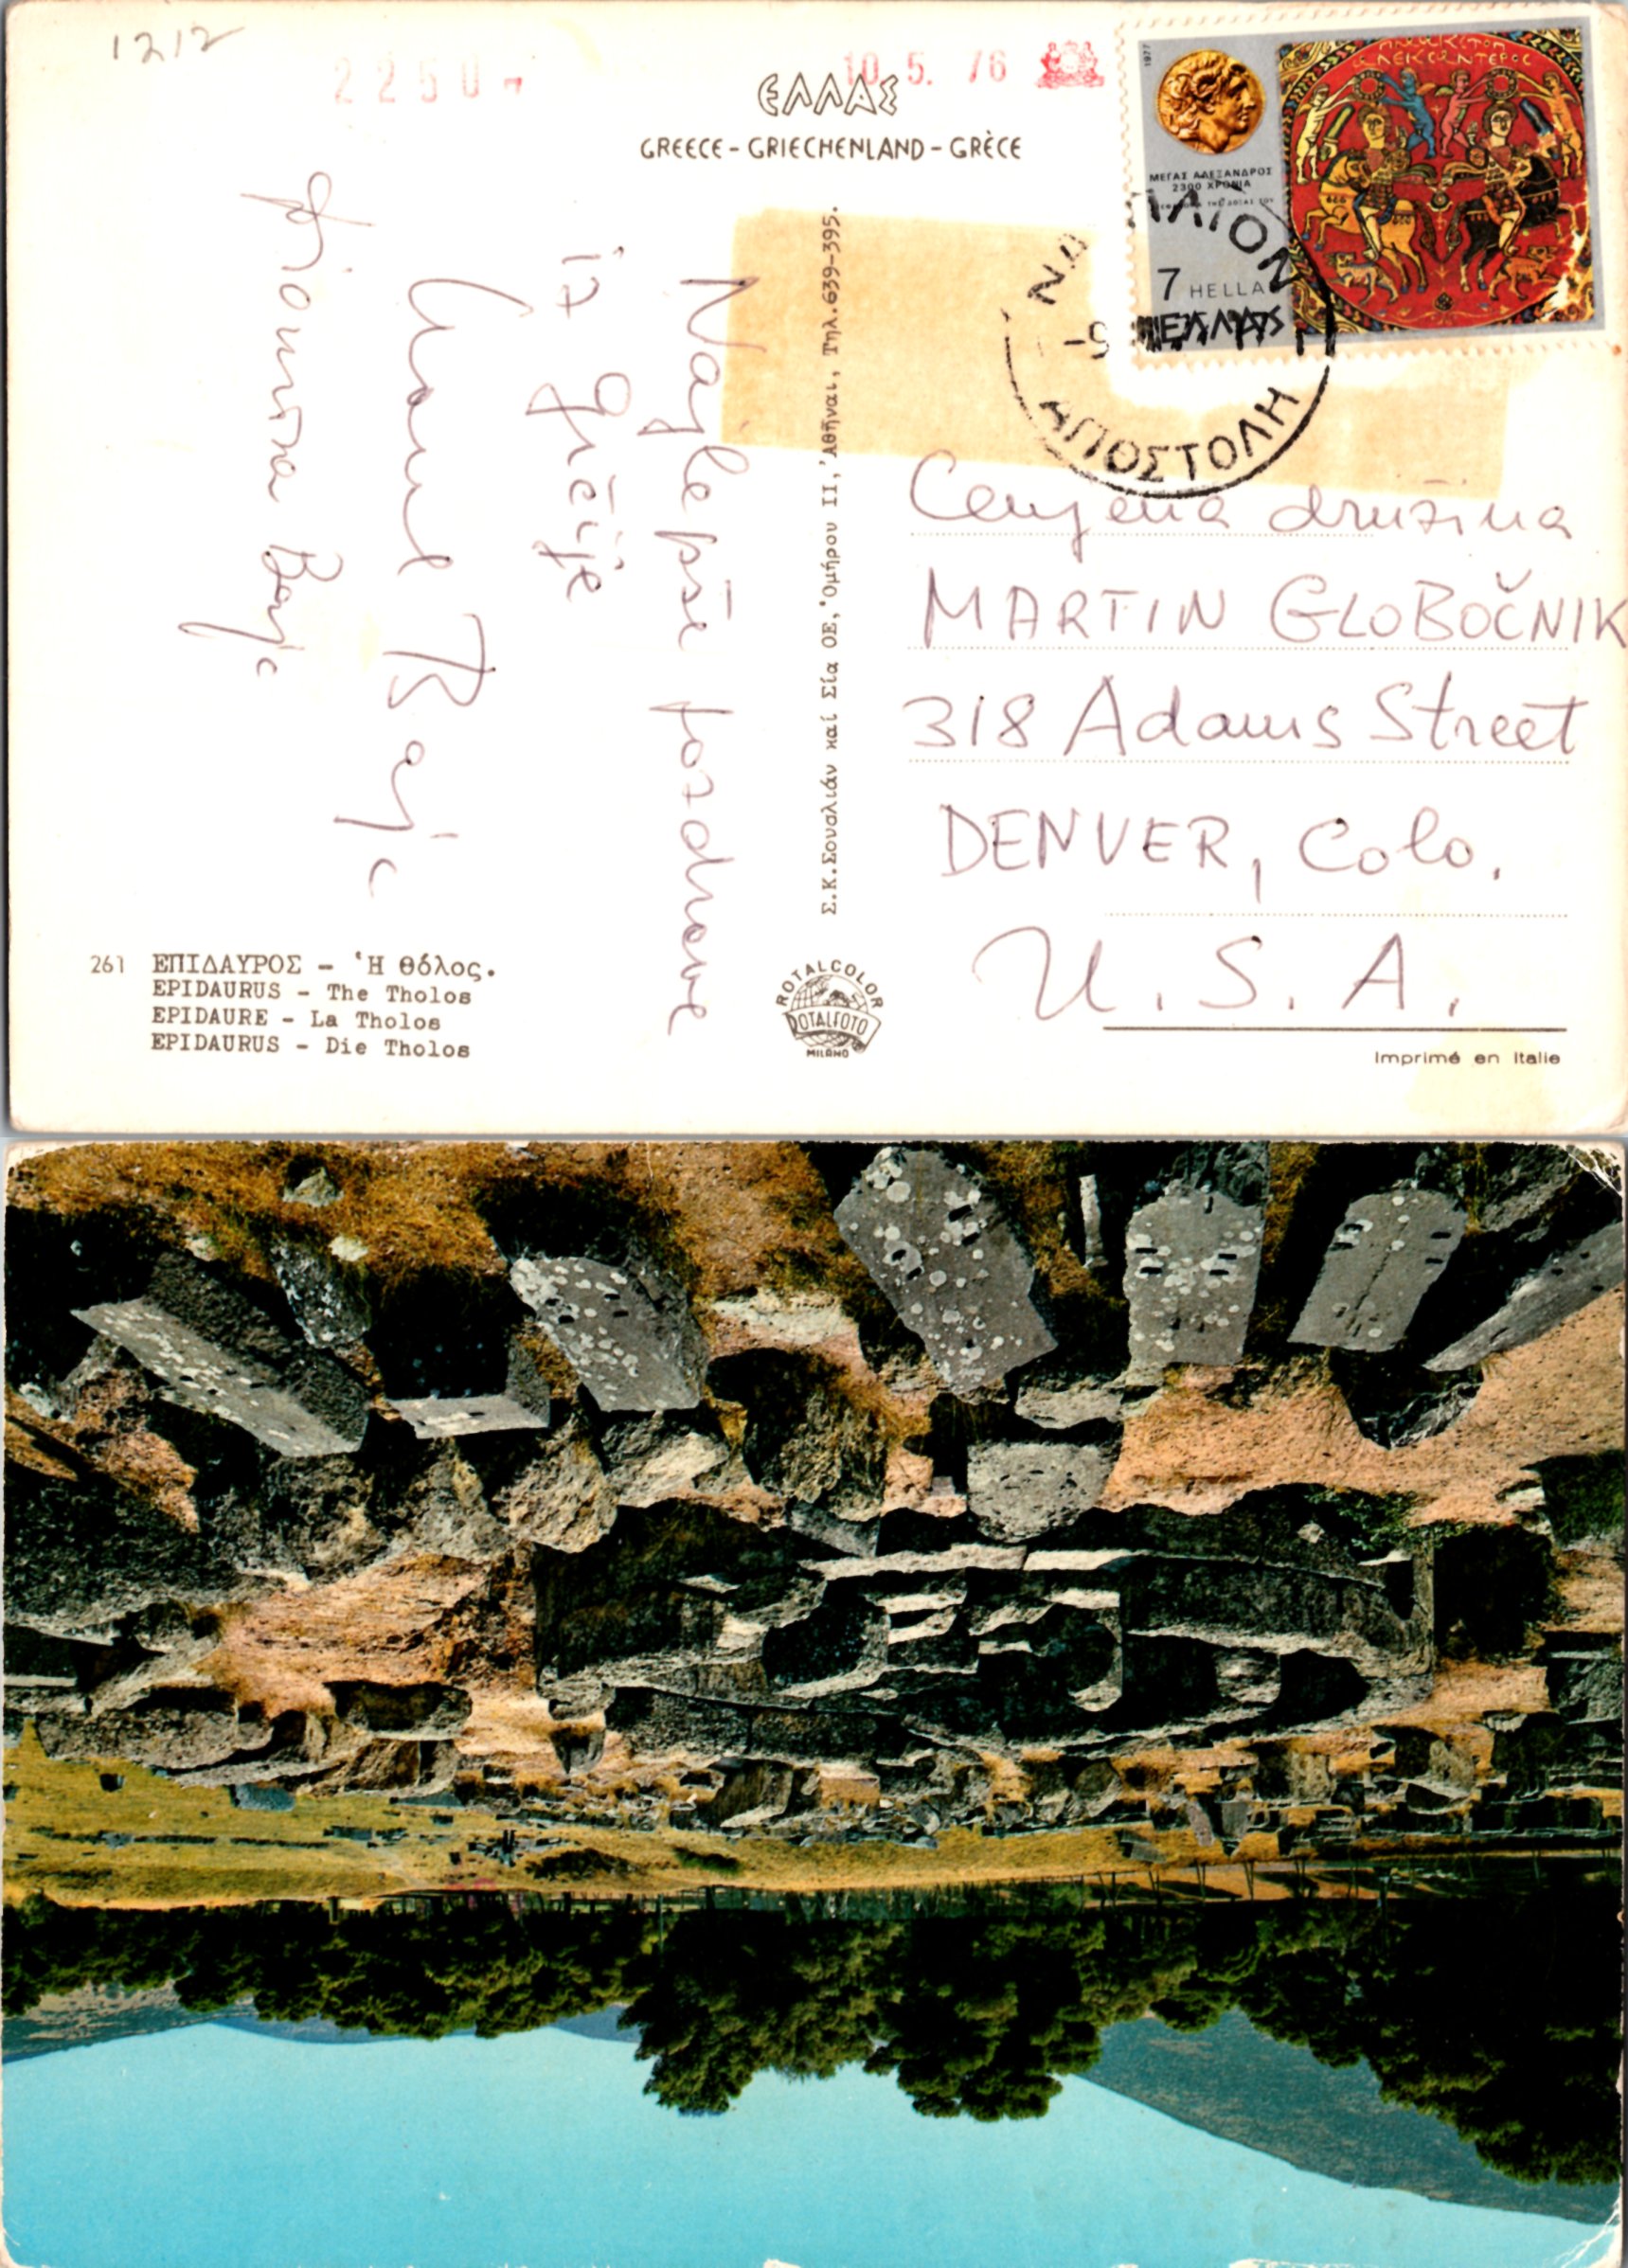 1212
2250
10. 5. 76
ΕΛΛΑΣ
GREECE - GRIECHENLAND - GRÈCE
1977
ΜΕΓΑΣ ΑΛΕΞΑΝΔΡΟΣ
2300 ΧΡΟΝΙΑ
7 HELLAS
ΕΛΛΑΣ
ΑΠΟΣΤΟΛΗ
Najlepše pozdrave
iz Grčije
Σ.Κ.Σουαλιάν καί Σία ΟΕ, Ὁμήρου ΙΙ, Ἀθῆναι, Τηλ.639-395.
Cenjena družina
MARTIN GLOBOČNIK
318 Adams Street
DENVER, Colo.
U.S.A.
261 ΕΠΙΔΑΥΡΟΣ - Ἡ Θόλος.
EPIDAURUS - The Tholos
EPIDAURE - La Tholos
EPIDAURUS - Die Tholos
ROTALCOLOR
ROTALFOTO
MILANO
Imprimé en Italie